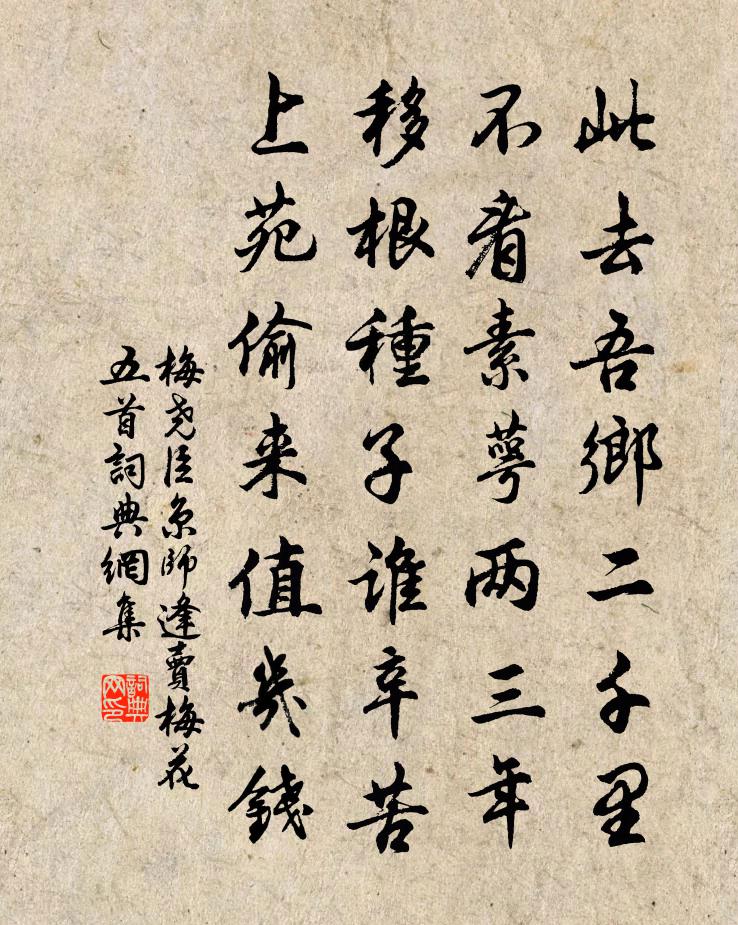 此去吾鄉二千里
不看素萼两三年
移根種子谁辛苦
上苑偷来值幾錢
梅尧臣京師逢賣梅花
五首詞典網集
詞典
网印